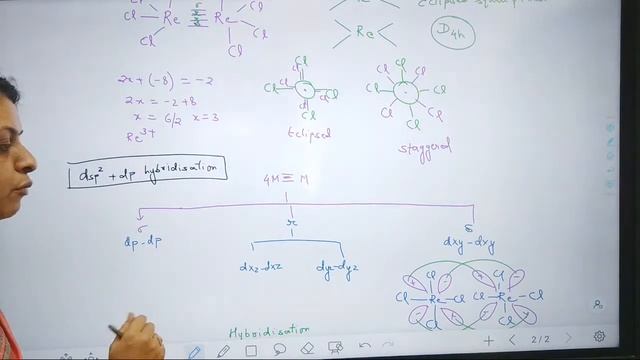 σ
Cl Re Re Cl
Cl Cl
Cl Cl
Re
D4h
2x + (-8) = -2
2x = -2+8
x = 6/2 x = 3
Re3+
Cl Cl
Cl Cl Cl Cl
Cl Cl
Eclipsed
Cl
Cl Cl
Cl Cl
Cl Cl
Cl
staggered
dsp2 + dp hybridisation
4M≡M
σ π δ
dp-dp dxz-dxz dyz-dyz dxy-dxy
Cl Cl
Cl Re Cl Cl Re Cl
Cl Cl
Hybridisation
2/2